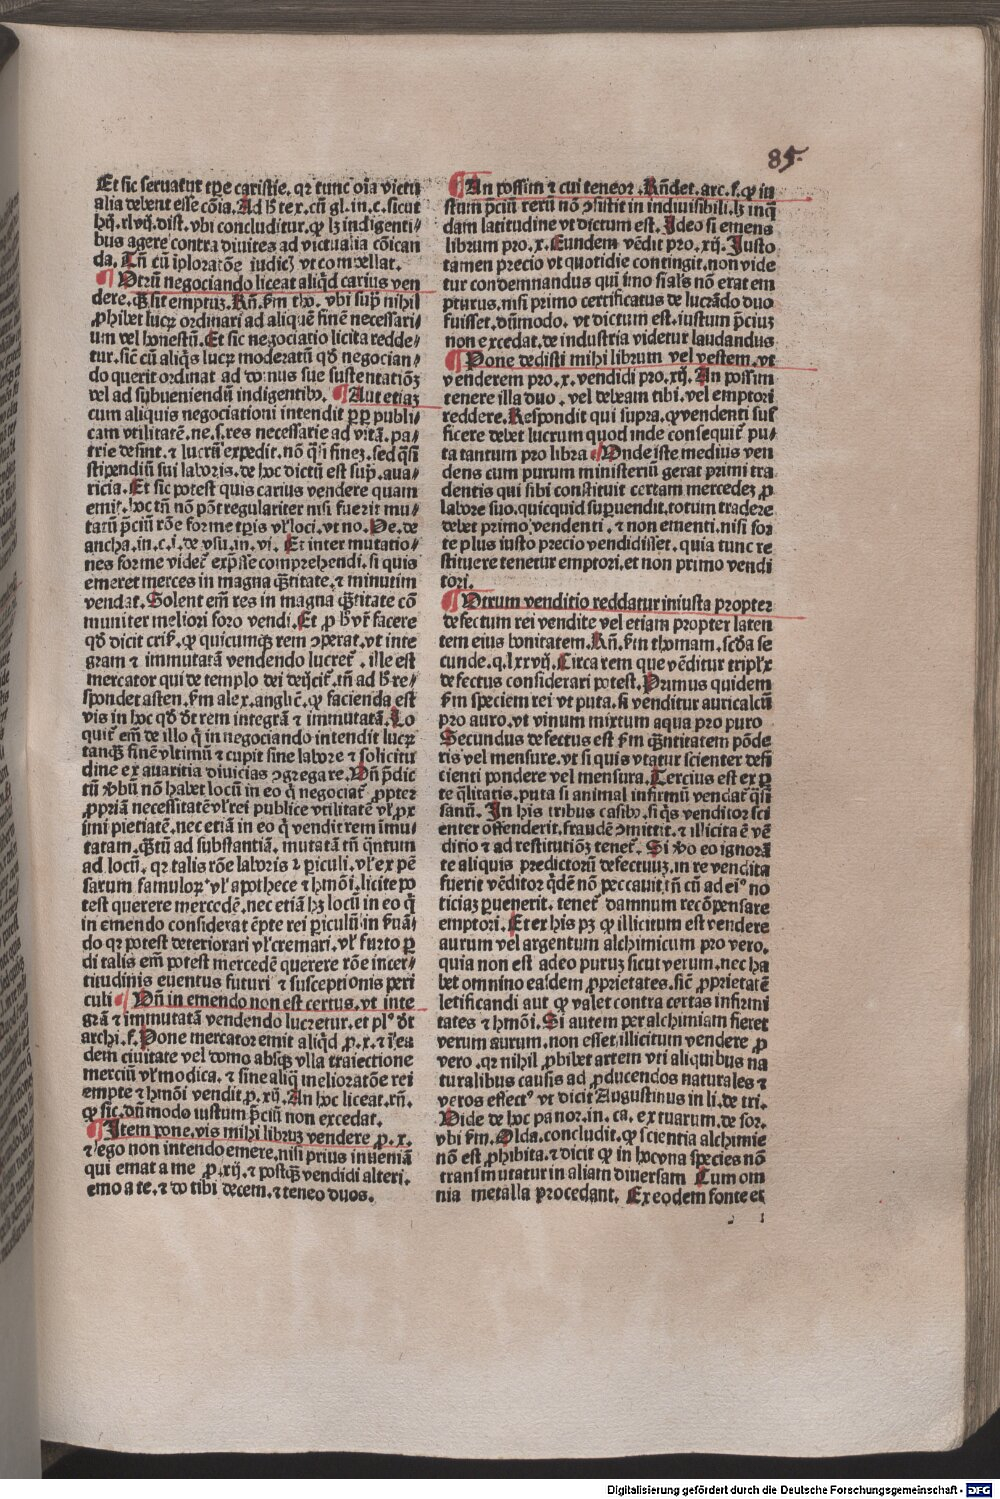 85.
Et sic seruatur tꝑe caristie. qꝛ tunc oīa victu
alia debent esse cōia. Ad h̄ tex. cū gl. in. c. sicut
hij. xlvij. dist. vbi concluditur. ꝙ lꝫ indigenti⸗
bus agere contra diuites ad victualia cōican
da. Tn̄ cū īploratōe iudicꝭ vt compellat.
¶ Vtrū negociando liceat aliqd carius ven
dere. qꝫ sit emptuꝫ. Rn̄. ẜm tho. vbi supꝰ nihil
ꝓhibet lucrꝫ ordinari ad aliquē finē necessari⸗
um vel honestū. Et sic negociatio licita redde⸗
tur. sicut cū aliqs lucrꝫ moderatū qd̄ negocian⸗
do querit ordinat ad domus sue sustentatiōꝫ
vel ad subueniendū indigentibꝰ. ¶ Aut etiaꝫ
cum aliquis negociationi intendit ꝑpꝑ publi⸗
cam vtilitatē. ne. s. res necessarie ad vitā. pa⸗
trie desint. ⁊ lucrū expedit. nō qsi fineꝫ. sed qsi
stipendiū sui laboris. de hoc dictū est supꝰ. aua⸗
ricia. Et sic potest quis carius vendere quam
emit. hoc tn̄ nō pōt regulariter nisi fuerit mu⸗
tatū p̄ciū rōe forme tꝑis vl̓ loci. vt no. Pe. de
ancha. in. c. i. de vsu. in. vi. Et inter mutatio⸗
nes forme videt̓ exp̄sse comprehendi. si quis
emeret merces in magna qꝫtitate. ⁊ minutim
vendat. Solent em̄ res in magna qꝫtitate cō
muniter meliori foro vendi. Et ꝓ h̄ vr̄ facere
qd̄ dicit criẜ. ꝙ quicumqꝫ rem ꝯperat. vt inte
gram ⁊ immutatā vendendo lucret̓. ille est
mercator qui de templo dei deijcit̓. tn̄ ad h̄ re⸗
spondet asten. ẜm alex. anglic̄. ꝙ facienda est
vis in hoc qd̄ dr̄ rem integrā ⁊ immutatā. Lo
quit̓ em̄ de illo q̄ in negociando intendit lucrꝫ
tanqꝫ finē vltimū ⁊ cupit sine labore ⁊ solicitu
dine ex auaritia diuicias ꝯgregare. Vn̄ p̄dic
tū ꝟbū nō habet locū in eo q̄ negociat̓ ꝓpter
ꝓpriā necessitatē vl̓ rei publice vtilitatē vl̓ ꝓx
imi pietatē. nec etiā in eo q̄ vendit rem īmu⸗
tatam. qꝫtū ad substantiā. mutatā tn̄ qntum
ad locū. qꝛ talis rōe laboris ⁊ ꝑiculi. vl̓ ex pē
sarum famuloꝝ vl̓ apothece ⁊ hmōi. licite po
test querere mercedē. nec etiā hꝫ locū in eo q̄
in emendo considerat ēpte rei ꝑiculū in ẜuā⸗
do qꝛ potest deteriorari vl̓ cremari. vl̓ furto ꝑ
di talis em̄ potest mercedē querere rōe incer⸗
titudinis euentus futuri ⁊ susceptionis peri
culi ¶ Vn̄ in emendo non est certus. vt inte
grā ⁊ immutatā vendendo lucretur. et plꝰ dr̄t
archi. f. Pone mercator emit aliqd ꝓ. x. ⁊ ī ea
dem ciuitate vel domo absqꝫ vlla traiectione
merciū vl̓ modica. ⁊ sine aliq̄ melioratōe rei
empte ⁊ hmōi vendit ꝓ. xij. An hoc liceat. rn̄.
ꝙ sic. dūmodo iustum p̄ciū non excedat.
¶ Item pone. vis mihi libruꝫ vendere ꝓ. x.
⁊ ego non intendo emere. nisi prius inueniā
qui emat a me ꝓ. xij. ⁊ postqꝫ vendidi alteri.
emo a te. ⁊ do tibi decem. ⁊ teneo duos.
¶ An possim ⁊ cui teneor. Rn̄det. arc. f. ꝙ iu
stum p̄ciū rerū nō ꝯsistit in indiuisibili. lꝫ inq̄
dam latitudine vt dictum est. Ideo si emens
librum pro. x. Eundem vēdit pro. xij. Justo
tamen precio vt quotidie contingit. non vide
tur condemnandus qui īmo si als nō erat em
pturus. nisi primo certificatus de lucrādo duo
fuisset. dūmodo. vt dictum est. iustum p̄ciuꝫ
non excedat. de industria videtur laudandus
¶ Pone dedisti mihi librum vel vestem. vt
venderem pro. x. vendidi pro. xij. An possum
tenere illa duo. vel debeam tibi. vel emptori
reddere. Respondit qui supra. ꝙ vendenti suf
ficere debet lucrum quod inde consequit̓ pu⸗
ta tantum pro libra ¶ Vnde iste medius ven
dens cum purum ministeriū gerat primi tra
dentis qui sibi constituit certam mercedeꝫ ꝓ
labore suo. quicquid suꝑuendit. totum tradere
debet primo vendenti. ⁊ non ementi. nisi for
te plus iusto precio vendidisset. quia tunc re
stituere tenetur emptori. et non primo vendi
tori.
¶ Vtrum venditio reddatur iniusta propter
defectum rei vendite vel etiam propter laten
tem eius bonitatem. Rn̄. ẜm thomam. scd̄a se
cunde. q. lxxvij. Circa rem que vēditur triplꝭx
defectus considerari potest. Primus quidem
ẜm speciem rei vt puta. si venditur auricalcū
pro auro. vt vinum mixtum aqua pro puro
Secundus defectus est ẜm qꝫntitatem pōde
ris vel mensure. vt si quis vtatur scienter defi
cienti pondere vel mensura. Tercius est ex ꝑ
te q̄litatis. puta si animal infirmū vendat̓ qsi
sanū. In his tribus casibꝰ. si qs venditor sci
enter offenderit. fraudē ꝯmittit. ⁊ illicita ē vē
ditio ⁊ ad restitutiōꝫ tenet̓. Si ꝟo eo ignorā
te aliquis predictorū defectuuꝫ. in re vendita
fuerit vēditor qdē nō peccauit. tn̄ cū ad eiꝰ no
ticiaꝫ ꝑuenerit. tenet̓ damnum recōpensare
emptori. Et ex his pꝫ ꝙ illicitum est vendere
aurum vel argentum alchimicum pro vero.
quia non est adeo puruꝫ sicut verum. nec ha
bet omnino easdem ꝓprietates. sic̄ ꝓprietatē
letificandi aut ꝙ valet contra certas infirmi
tates ⁊ hmōi. Si autem per alchimiam fieret
verum aurum. non esset illicitum vendere ꝓ
vero. qꝛ nihil ꝓhibet artem vti aliquibus na
turalibus causis ad ꝓducendos naturales ⁊
veros effectꝰ vt dicit Augustinus in li. de tri.
Vide de hoc panor. in. ca. ex tuarum. de sor.
vbi ẜm. Olda. concludit. ꝙ scientia alchimie
nō est ꝓhibita. ⁊ dicit ꝙ in hoc vna species nō
transmutatur in aliam diuersam Cum om
nia metalla procedant. Ex eodem fonte ex
Digitalisierung gefördert durch die Deutsche Forschungsgemeinschaft - DFG